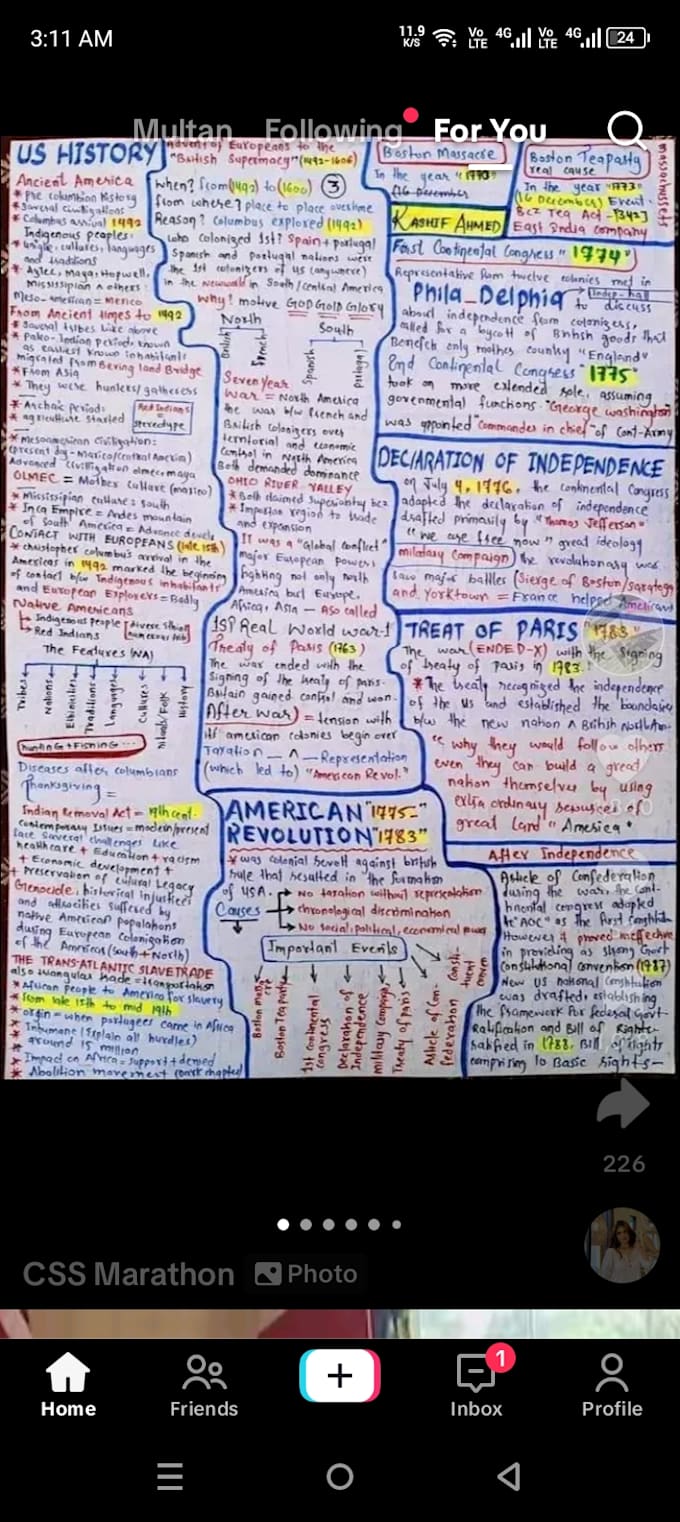 3:11 AM
11.9 K/S Vo LTE 4G Vo LTE 4G 24
Multan Following For You
US HISTORY
Ancient America
* Pre columbian History
* Several civilizations
* Columbus arrival 1492
Indigenous peoples:
* unique cultures, languages
and traditions
* Aztec, Maya, Hopwell,
Mississipian & others
Meso-american = Mexico
From Ancient times to 1492
* Several tribes like above
* Paleo-Indian period: known
as earliest known inhabitants
migrated from Bering land Bridge
* From Asia
* They were hunters/gatherers
* Archaic period:
* agriculture started
Red Indians = stereotype
* Mesoamerican civilization:
(present day-mexico/central America)
Advanced civilization olmec, maya
OLMEC = Mother culture (mexico)
* Mississipian culture: south
* Inca Empire = Andes mountain
of south America = Advance
CONTACT WITH EUROPEANS (late 15th)
* christopher columbus's arrival in the
Americas in 1492 marked the beginning
of contact b/w Indigenous inhabitants
and European Explorers = Badly
Native Americans
Indigenous people
Red Indians
The Features (NA)
Tribes
Nations
Ethinicities
Traditions
Languages
Cultures
History
Hunting + Fishing ...
Diseases after columbians
Thanksgiving =
Indian Removal Act = 19th cent.
contemporary Issues = modern/present
face several challenges like
healthcare + Education + racism
+ Economic development +
+ Preservation of cultural Legacy
Genocide, historical injustices
and atrocities suffered by
native American populations
during European Colonization
of the Americas (south + North)
THE TRANS-ATLANTIC SLAVE TRADE
also triangular trade = transportation
* African people to America for slavery
* from late 15th to mid 19th
* orgin = when portugees came in Africa
* Inhumane (Explain all hurdles)
* around 15 million
* Impact on Africa = support + denied
* Abolition movement
Advent of Europeans to the
"British Supermacy" (1492-1606)
when? from (1492) to (1600) 3
from where? place to place overtime
Reason? Columbus explored (1492)
who colonized 1st? Spain + portugal
Spanish and portugal nations were
the 1st colonizers of US (anywhere)
in the newworld in South/central America
why? motive GOD GOLD GLORY
North
South
British
French
Spanish
Portugal
Seven year
war = North America
the war b/w french and
British colonizers over
territorial and economic
control in North America
Both demanded dominance
OHIO RIVER VALLEY
* Both claimed superiority bcz
* Important region to trade
and expansion
It was a "Global conflict"
major European powers
fighting not only north
America but Europe,
Africa, Asia — aso called
1st Real World war-1
Treaty of Paris (1763)
The war ended with the
signing of the treaty of paris.
Britain gained control and won.
After war) = tension with
its american colonies begin over
Taxation — Λ — Representation
(which led to) "American Revol."
AMERICAN "1775-
REVOLUTION "1783"
* was colonial revolt against british
rule that resulted in the formation
of USA.
Causes
No taxation without representation
chronological discrimination
No social, political, economical power
Important Events
Boston massacre
Boston Tea party
1st continental congress
Declaration of Independence
military campaings
Treaty of paris
Article of Confederation
Constituent conven
Boston Massacre
In the year "1770"
(16 December)
KASHIF AHMED
Boston Teaparty
real cause
In the year "1773"
(16 December) Event
Bcz Tea Act
East India company
massachussett
First Continental Congress "1774"
Representative from twelve colonies met in
Phila_Delphia to discuss
about independence from colonizers,
called for a boycott of British goods that
Benefit only mother country "England"
2nd Continental Congress "1775"
took on more extended role, assuming
governmental functions. "George washington"
was appointed "commander in chief" of Cont-Army
DECLARATION OF INDEPENDENCE
on July 4, 1776, the continental Congress
adapted the declaration of independence
drafted primarily by "Thomas Jefferson"
"we are free now" great ideology
military campaign) the revolutionary war
saw major battles (Sierge of Boston/saratoga
and yorktown = France helped Americans
TREAT OF PARIS "1783"
The war (ENDED-X) with the signing
of treaty of paris in 1783.
* The treaty recognized the independence
of the US and established the boundaries
b/w the new nation Λ British North Am.
"why they would follow others
even they can build a great
nation themselves by using
extra ordinary resources of
great land "America"
After Independence
Article of Confederation
during the war, the cont-
inental congress adopted
"AOC" as the first constitution
However it proved ineffective
in providing as strong Govt
Constitutional convention (1787)
New US national constitution
was drafted, establishing
the framework for federal Govt
Ratification and Bill of Rights
ratified in 1788, Bill of rights
comprising 10 Basic rights-
226
CSS Marathon
Photo
Home
Friends
1
Inbox
Profile